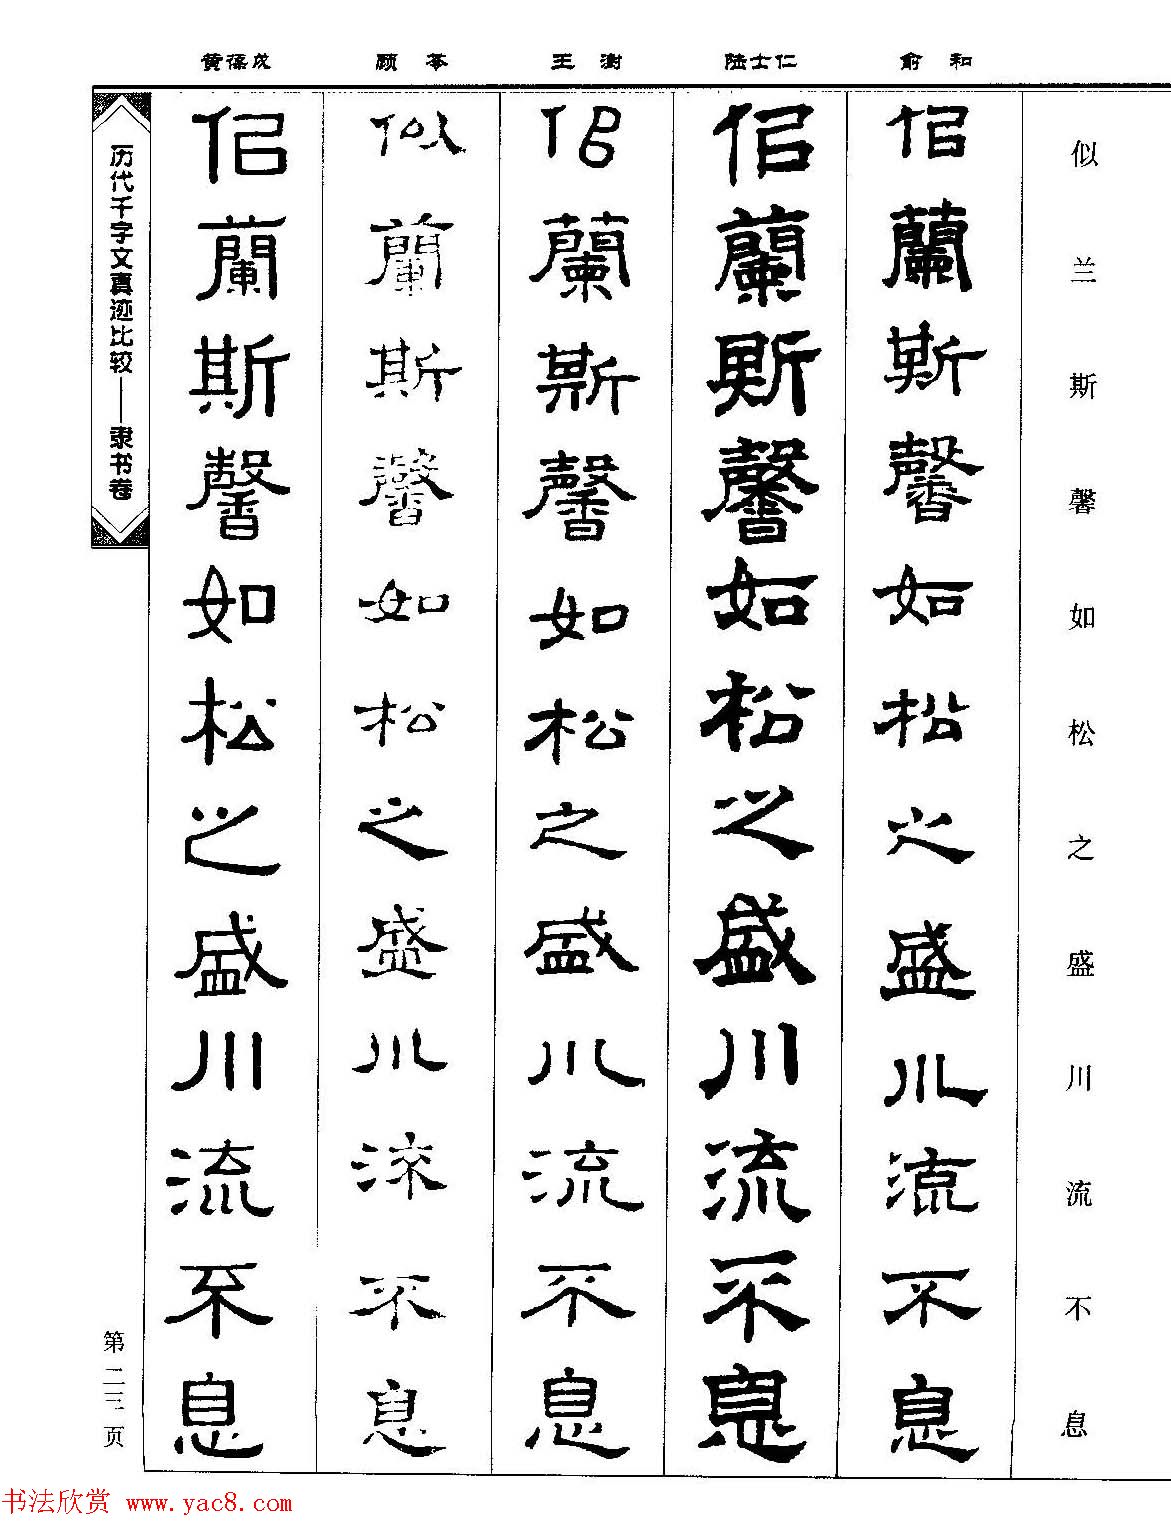 黄葆戉 顾苓 王澍 陆士仁 俞和
似兰斯馨如松之盛川流不息
佀蘭斯馨如松之盛川流不息
佀蘭斯馨如松之盛川流不息
佀蘭斯馨如松之盛川流不息
似蘭斯馨如松之盛川流不息
佀蘭斯馨如松之盛川流不息
历代千字文真迹比较——隶书卷
第二三页
书法欣赏 www.yac8.com